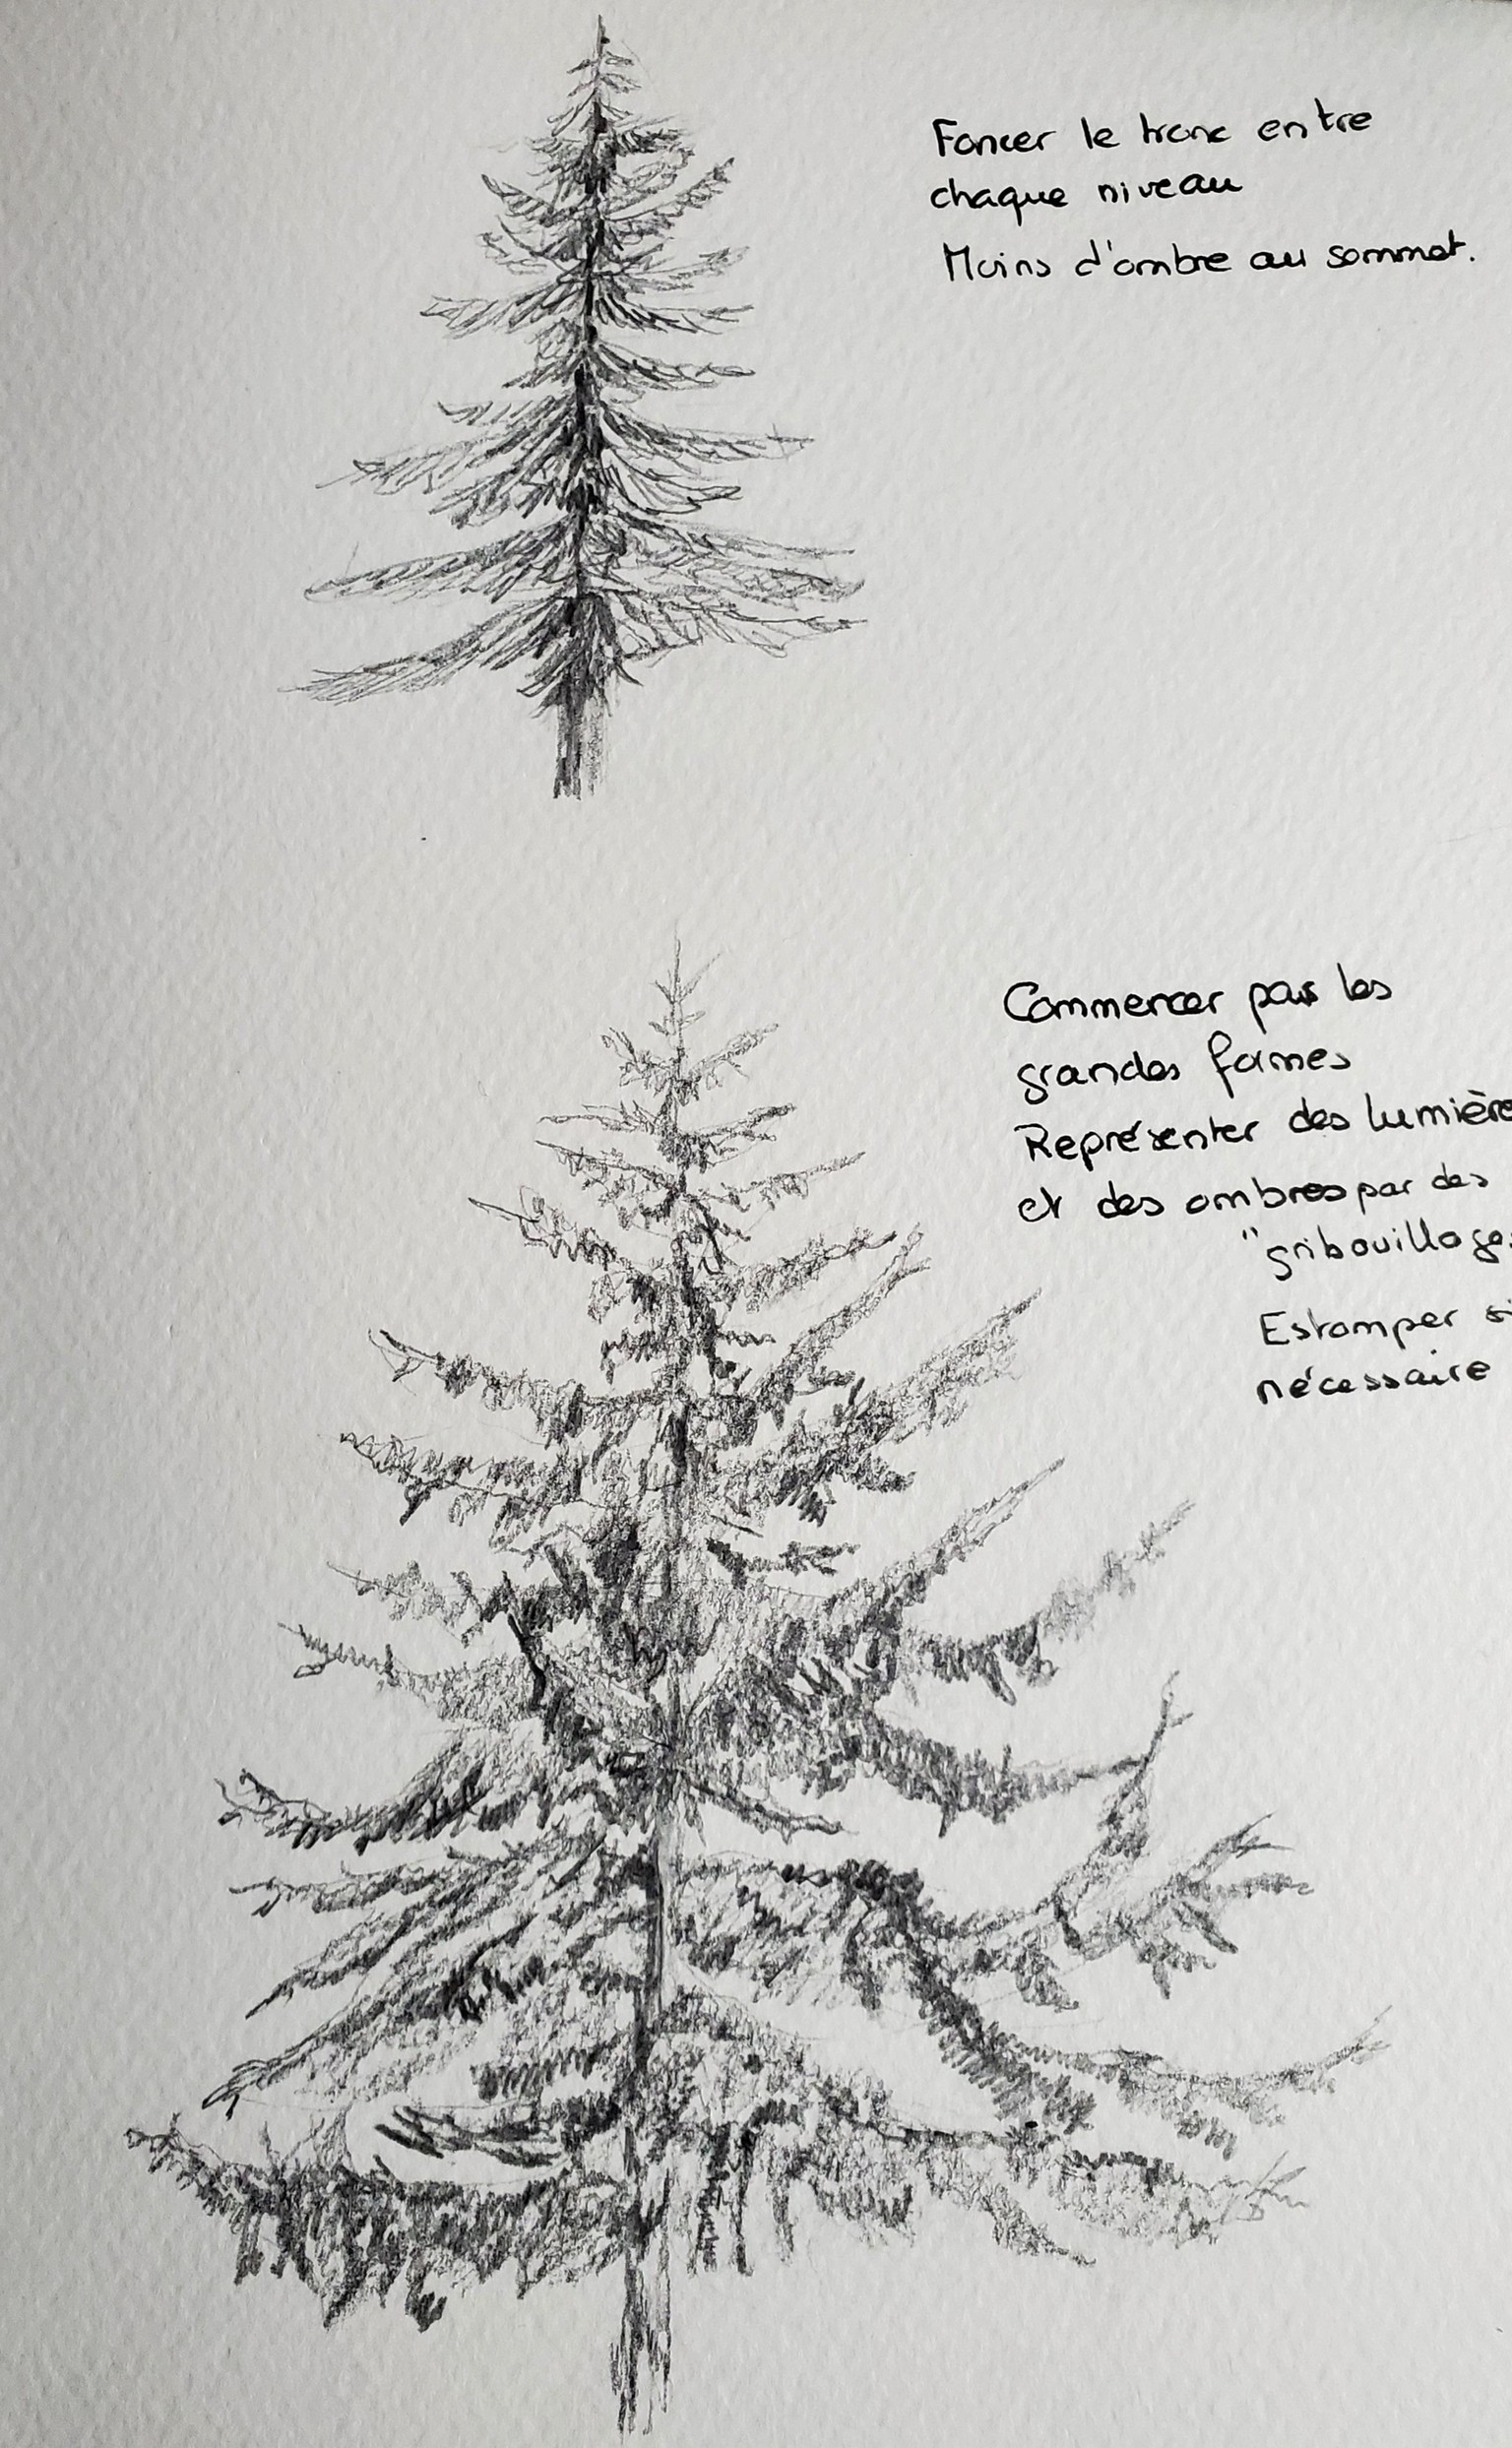 Foncer le tronc entre
chaque niveau
Moins d'ombre au sommet.
Commencer par les
grandes formes
Représenter des lumière
et des ombres par des
"gribouillage
Estomper si
nécessaire